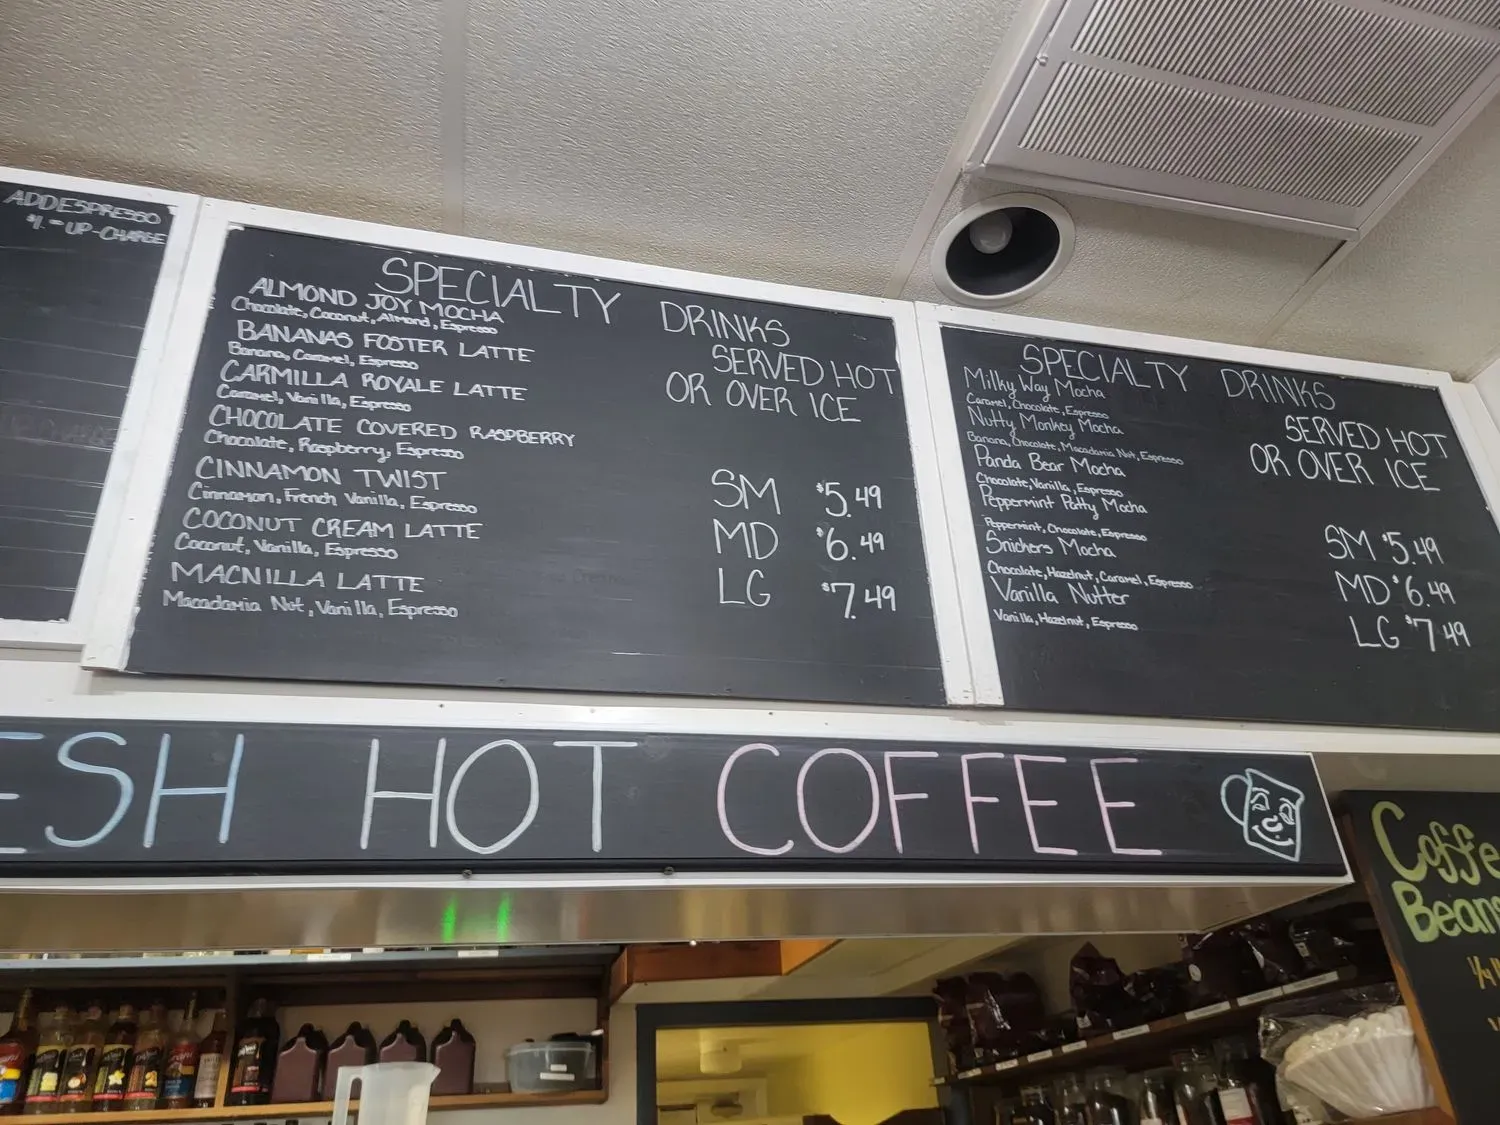 ADD ESPRESSO
$1.- UP-CHARGE
SPECIALTY DRINKS
ALMOND JOY MOCHA
Chocolate, Coconut, Almond, Espresso
BANANAS FOSTER LATTE
Banana, Caramel, Espresso
CARMILLA ROYALE LATTE
Caramel, Vanilla, Espresso
CHOCOLATE COVERED RASPBERRY
Chocolate, Raspberry, Espresso
CINNAMON TWIST
Cinnamon, French Vanilla, Espresso
COCONUT CREAM LATTE
Coconut, Vanilla, Espresso
MACNILLA LATTE
Macadamia Nut, Vanilla, Espresso
SERVED HOT
OR OVER ICE
SM $5.49
MD $6.49
LG $7.49
SPECIALTY DRINKS
Milky Way Mocha
Caramel, Chocolate, Espresso
Nutty Monkey Mocha
Banana, Chocolate, Macadamia Nut, Espresso
Panda Bear Mocha
Chocolate, Vanilla, Espresso
Peppermint Patty Mocha
Peppermint, Chocolate, Espresso
Snickers Mocha
Chocolate, Hazelnut, Caramel, Espresso
Vanilla Nutter
Vanilla, Hazelnut, Espresso
SERVED HOT
OR OVER ICE
SM $5.49
MD $6.49
LG $7.49
ESH HOT COFFEE
Coffe
Beans
1/4